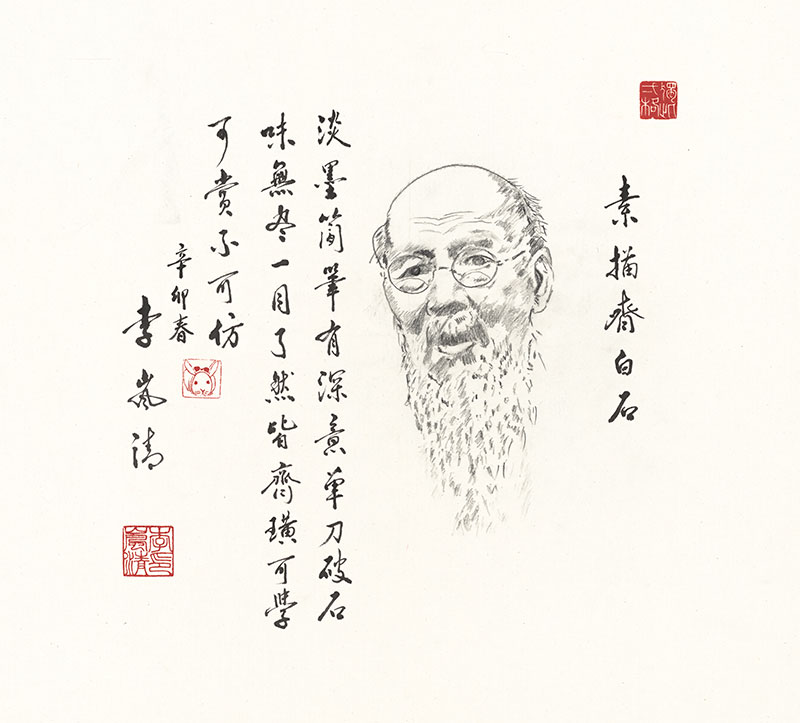 素描齊白石
淡墨簡筆有深意單刀破石
味無盡一目了然皆齊璜可學
可賞不可仿
辛卯春
李嵐清
李印嵐清